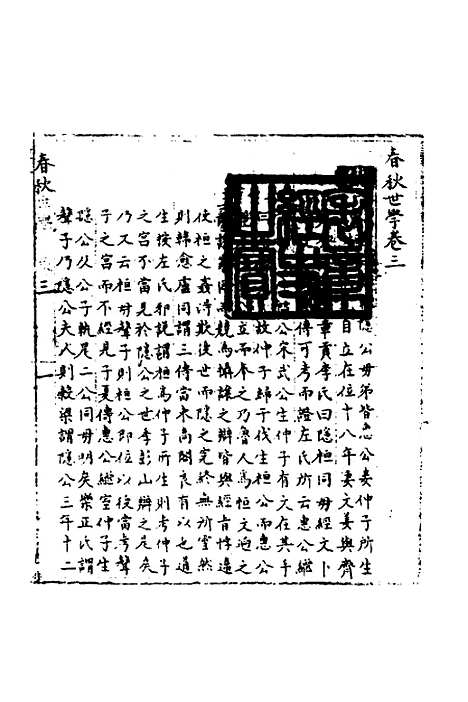 春秋世學卷三
隱公母弟皆惠公妾仲子所生
自立在位十八年妻文姜與齊
章貢李氏曰隱桓同母經文卜
傳可考而證左氏所云惠公繼
公宋武公生仲子有文在其手
故仲子歸于我生桓公而惠公
立而奉之乃魯人為桓文過之
競為攝讓之辯皆與經旨悖遠
使桓之姦得欺後世而隱之冤終無所雪然
則韓愈盧同謂三傳當束高閣良有以也道
生按左氏邪說謂桓為仲子所生則考仲子
之宮不當見於隱公之世季彭山辨之是矣
乃又云桓母聲子則桓公即位以後當考聲
子之宮而不經見子夏傳惠公繼室仲子生
隱公及公子軌是二公同母明矣榮正氏謂
聲子乃隱公夫人則穀梁謂隱公三年十二
春秋
三
一